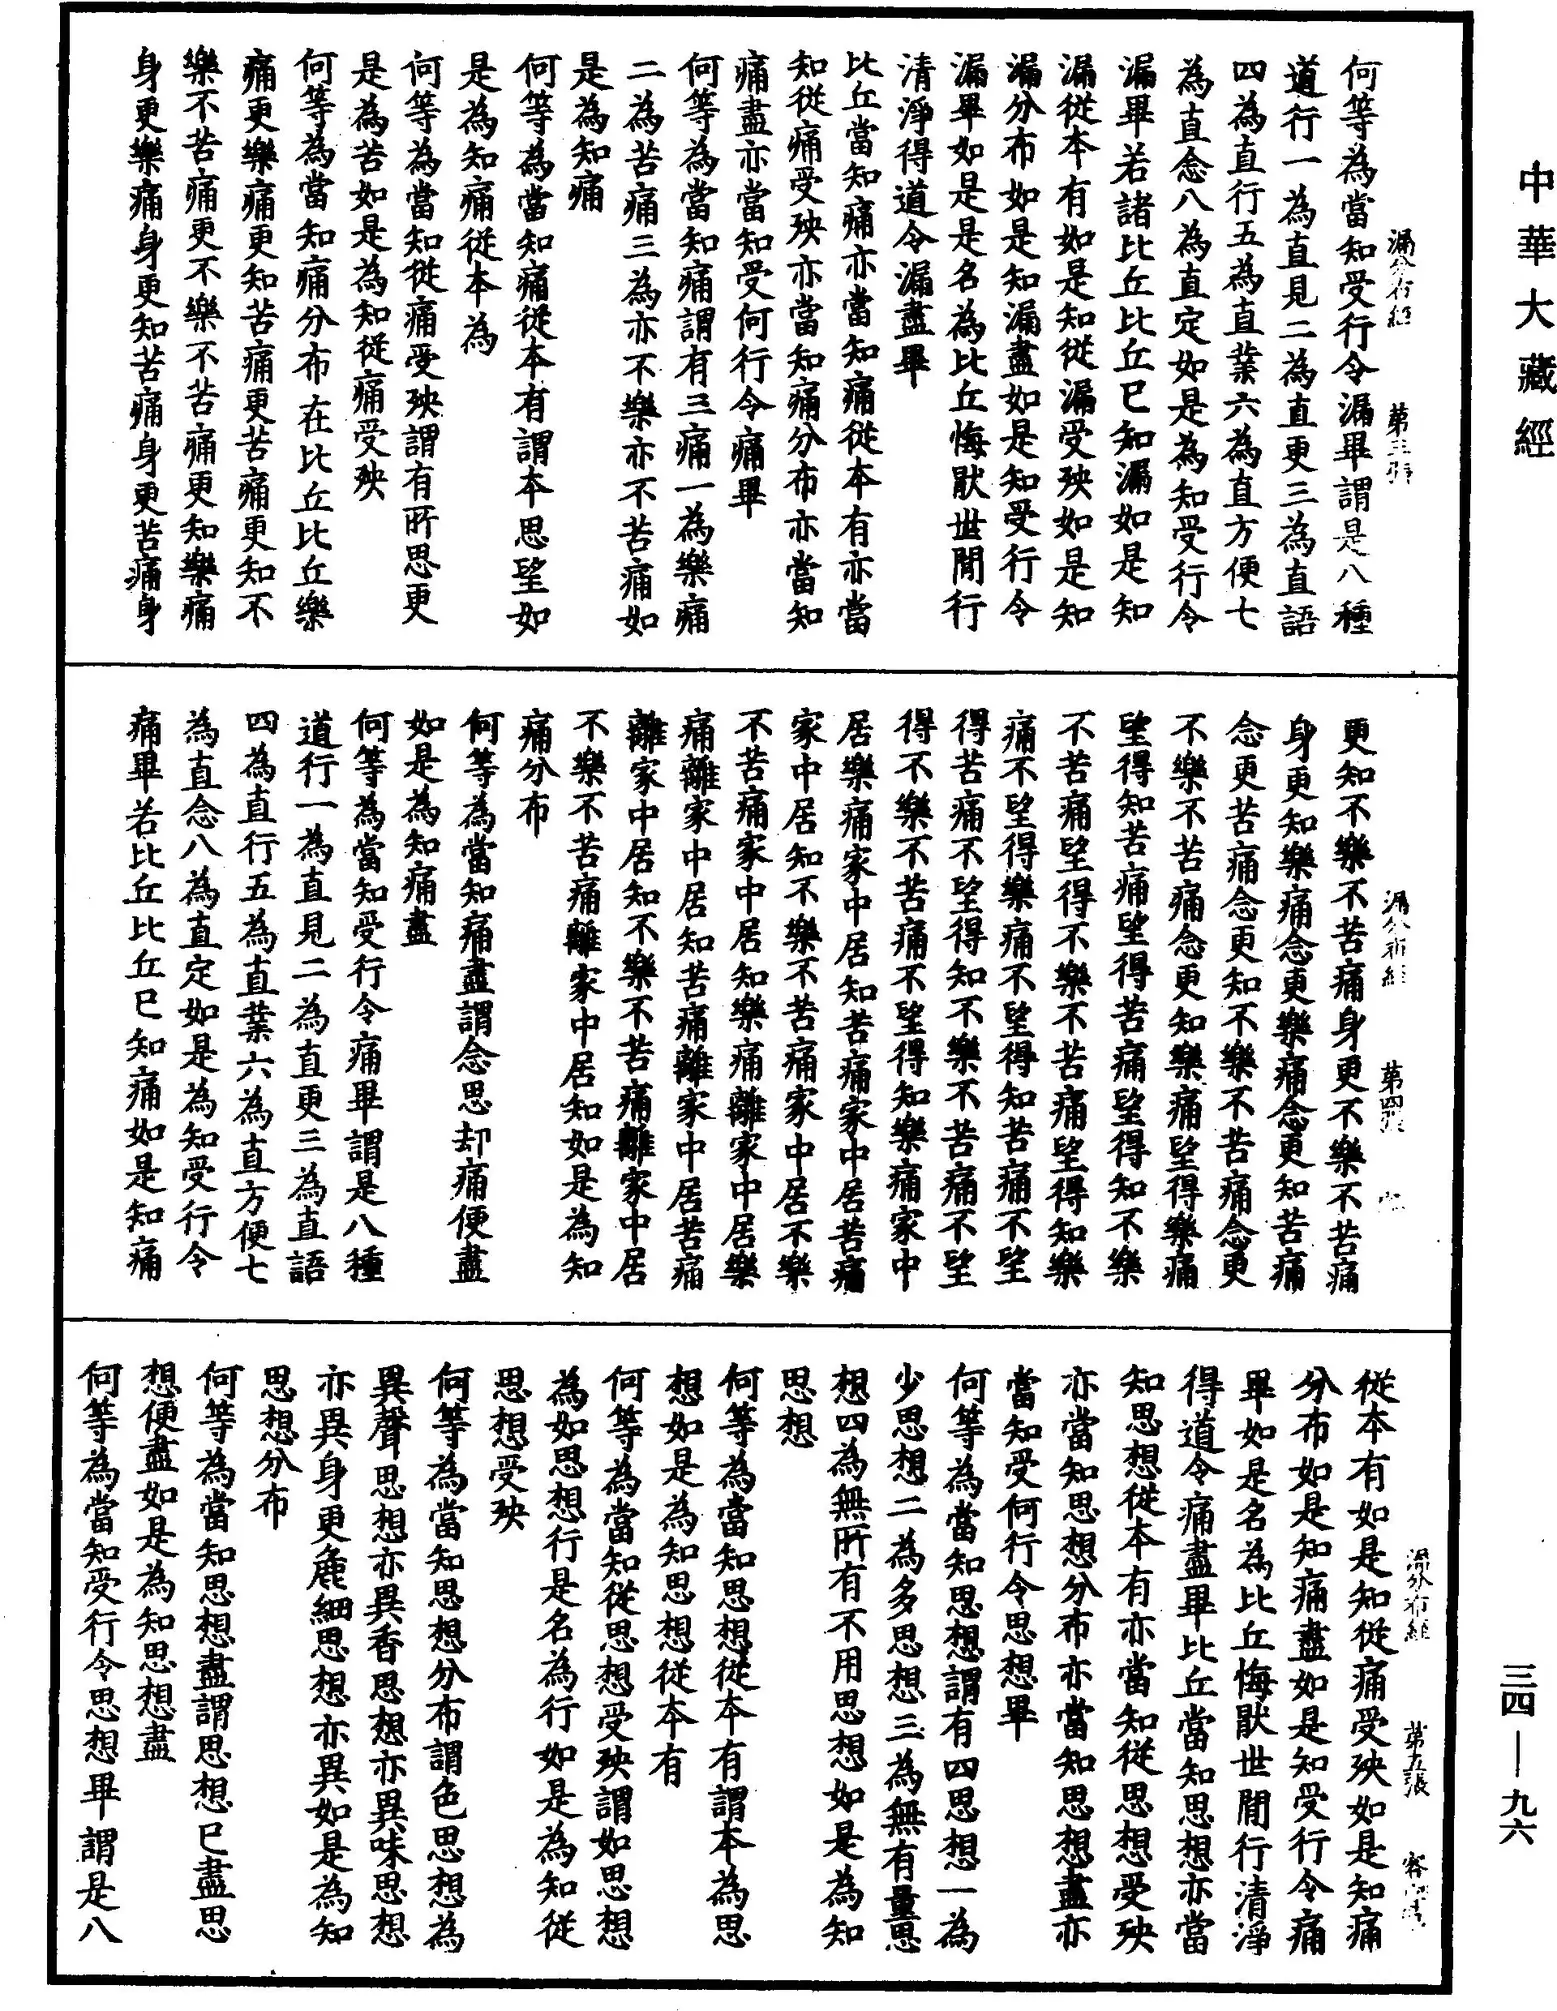 中華大藏經
漏分布經 第三張
何等為當知受行令漏畢謂是八種
道行一為直見二為直更三為直語
四為直行五為直業六為直方便七
為直念八為直定如是為知受行令
漏畢若諸比丘比丘已知漏如是知
漏從本有如是知從漏受殃如是知
漏分布如是知漏盡如是知受行令
漏畢如是是名為比丘悔猒世間行
清淨得道令漏盡畢
比丘當知痛亦當知痛從本有亦當
知從痛受殃亦當知痛分布亦當知
痛盡亦當知受何行令痛畢
何等為當知痛謂有三痛一為樂痛
二為苦痛三為亦不樂亦不苦痛如
是為知痛
何等為當知痛從本有謂本思望如
是為知痛從本為
何等為當知從痛受殃謂有所思更
是為苦如是為知從痛受殃
何等為當知痛分布在比丘比丘樂
痛更樂痛更知苦痛更苦痛更知不
樂不苦痛更不樂不苦痛更知樂痛
身更樂痛身更知苦痛身更苦痛身
漏分布經 第四張
更知不樂不苦痛身更不樂不苦痛
身更知樂痛念更樂痛念更知苦痛
念更苦痛念更知不樂不苦痛念更
不樂不苦痛念更知樂痛望得樂痛
望得知苦痛望得苦痛望得知不樂
不苦痛望得不樂不苦痛望得知樂
痛不望得樂痛不望得知苦痛不望
得苦痛不望得知不樂不苦痛不望
得不樂不苦痛不望得知樂痛家中
居樂痛家中居知苦痛家中居苦痛
家中居知不樂不苦痛家中居不樂
不苦痛家中居知樂痛離家中居樂
痛離家中居知苦痛離家中居苦痛
離家中居知不樂不苦痛離家中居
不樂不苦痛離家中居知如是為知
痛分布
何等為當知痛盡謂念思却痛便盡
如是為知痛盡
何等為當知受行令痛畢謂是八種
道行一為直見二為直更三為直語
四為直行五為直業六為直方便七
為直念八為直定如是為知受行令
痛畢若比丘比丘已知痛如是知痛
漏分布經 第五張 容
從本有如是知從痛受殃如是知痛
分布如是知痛盡如是知受行令痛
畢如是名為比丘悔猒世間行清淨
得道令痛盡畢比丘當知思想亦當
知思想從本有亦當知從思想受殃
亦當知思想分布亦當知思想盡亦
當知受何行令思想畢
何等為當知思想謂有四思想一為
少思想二為多思想三為無有量思
想四為無所有不用思想如是為知
思想
何等為當知思想從本有謂本為思
想如是為知思想從本有
何等為當知從思想受殃謂如思想
為如思想行是名為行如是為知從
思想受殃
何等為當知思想分布謂色思想為
異聲思想亦異香思想亦異味思想
亦異身更麁細思想亦異如是為知
思想分布
何等為當知思想盡謂思想已盡思
想便盡如是為知思想盡
何等為當知受行令思想畢謂是八
三四——九六